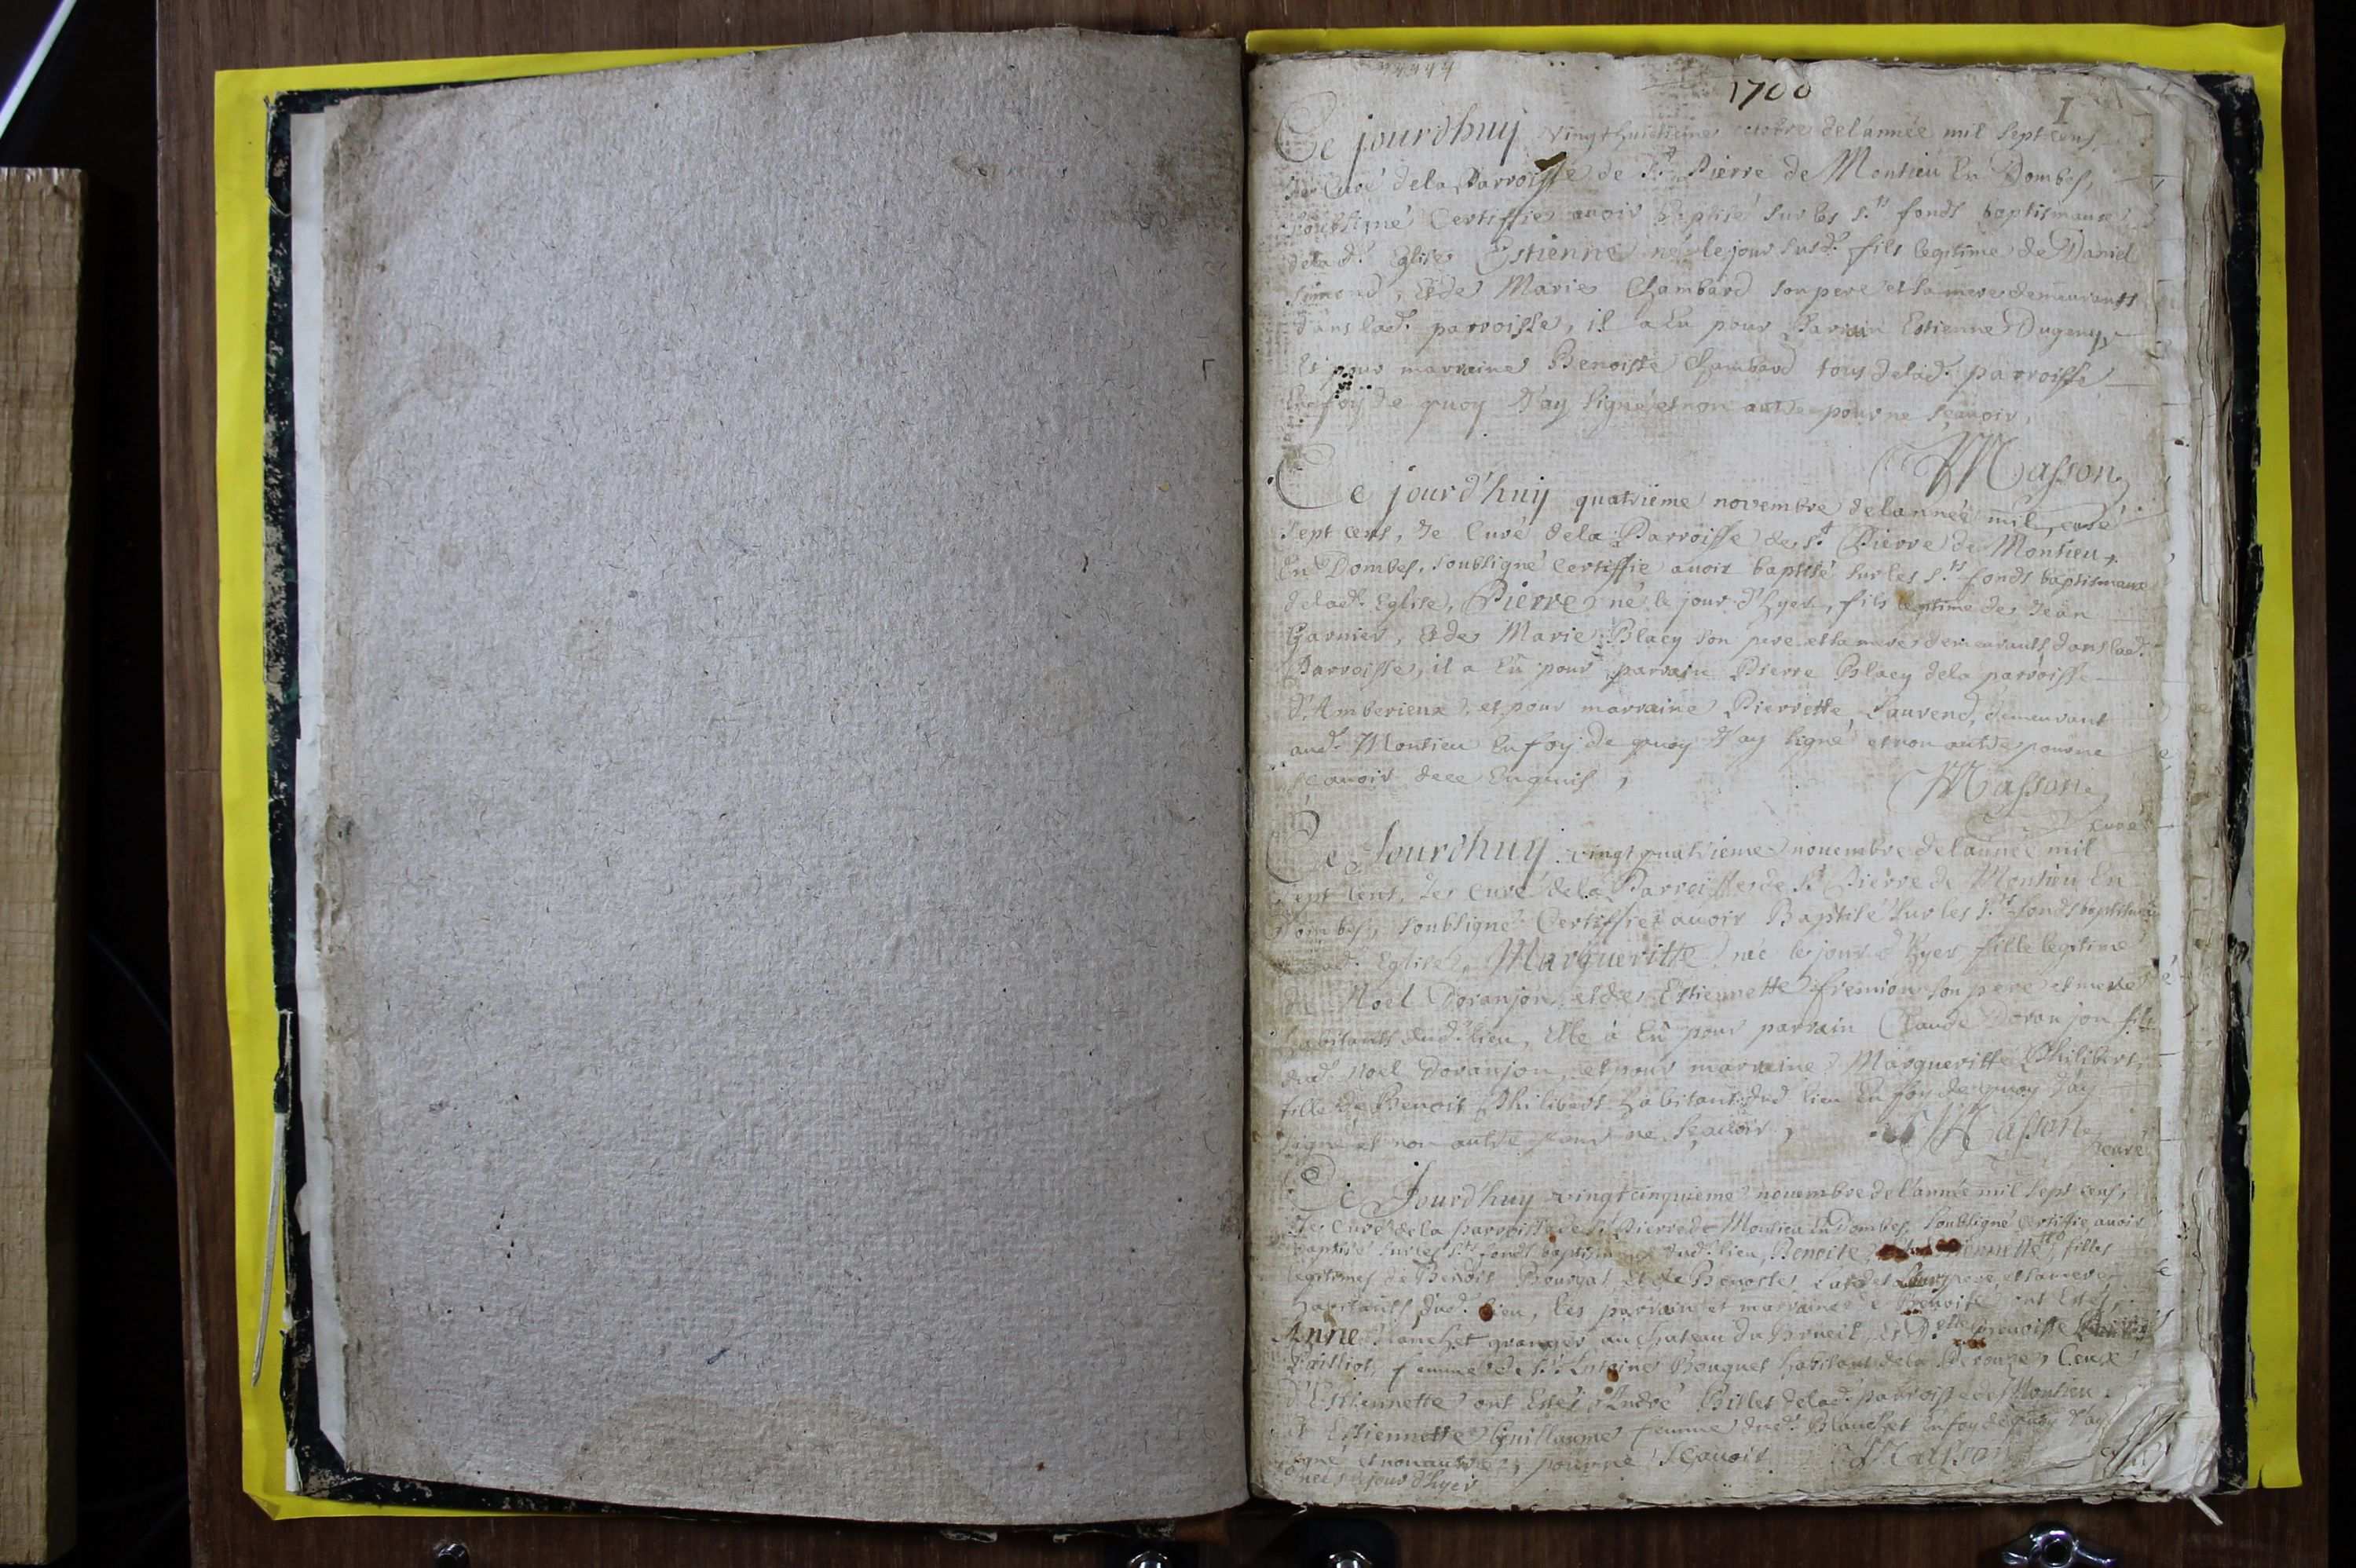 1700
I
Ce jourdhuy vingthuictieme octobre del'année mil sept cens
Curé dela Parroisse de St. Pierre de Montieu En Dombes,
soubsigné Certiffie avoir baptisé sur les s.ts fonds baptismaux
delad. Eglise Estienne né le jour susd. fils legitime de Daniel
simond, & de Marie Chambard son pere et sa mere demeurants
dans lad. parroisse, il a Eu pour Parrain Estienne Dugeny
Et pour marraine Benoiste Chambard tous delad. parroisse
En foy de quoy J'ay signé et non autre pour ne scavoir,
Masson
Ce jourd'huy quatrième novembre del'année mil curé
sept cens, Je Curé dela Parroisse de St. Pierre de Montieu
En Dombes, soubsigné Certiffie avoir baptisé sur les s.ts fonds baptismaux
delad. Eglise, Pierre né le jour d'hyer, fils legitime de Jean
Garnier, & de Marie Blacy son pere et sa mere demeurants dans lad.
Parroisse, il a Eû pour parrain Pierre Blacy dela parroisse
d'Amberieux, et pour marraine Pierrette Laurend, demeurant
aud. Montieu En foy de quoy J'ay signé et non autre pour ne
scavoir de ce Enquis,
Masson
curé
Ce Jourdhuy vingt quatrieme novembre del'année mil
sept cent, Je Curé dela Parroisse de St. Pierre de Montieu En
Dombes, soubsigné Certiffie avoir Baptisé sur les s.ts fonds baptismaux
delad. Eglise, Margueritte née le jour d'hyer fille legitime
de Noel Doranjon, et de Estiennette fremion son pere et mere
habitants dud. lieu, Elle à Eû pour parrain Claude Doranjon fils
dud. Noel Doranjon, et pour marraine Margueritte Philibert,
fille de Benoit Philibert habitant dud. lieu En foy de quoy J'ay
signé et non autre pour ne scavoir,
Masson
curé
Ce Jourd'huy vingtcinquieme novembre del'année mil sept cens,
Je Curé dela parroisse de St. Pierre de Montieu En Dombes, soubsigné Certiffie avoir
baptisé sur les s.ts fonds baptismaux dud. lieu, Benoite, filles
legitimes de Benoit et de Benoste pere et sa mere
habitants dud. lieu, les parrain et marraine de Benoite ont Estés
Anne Blanchet granger au chateau du Breuil, et Benoiste
femme de Sr. Antoine Bouquet habitant dela Perouze, Ceux
d'Estiennette ont Estés André Billet delad. parroisse de Montieu
et Estiennette Guillaume femme dud. Blanchet En foy de quoy J'ay
signé et non autre, pour ne scavoir
Masson
nées le jour d'hyer